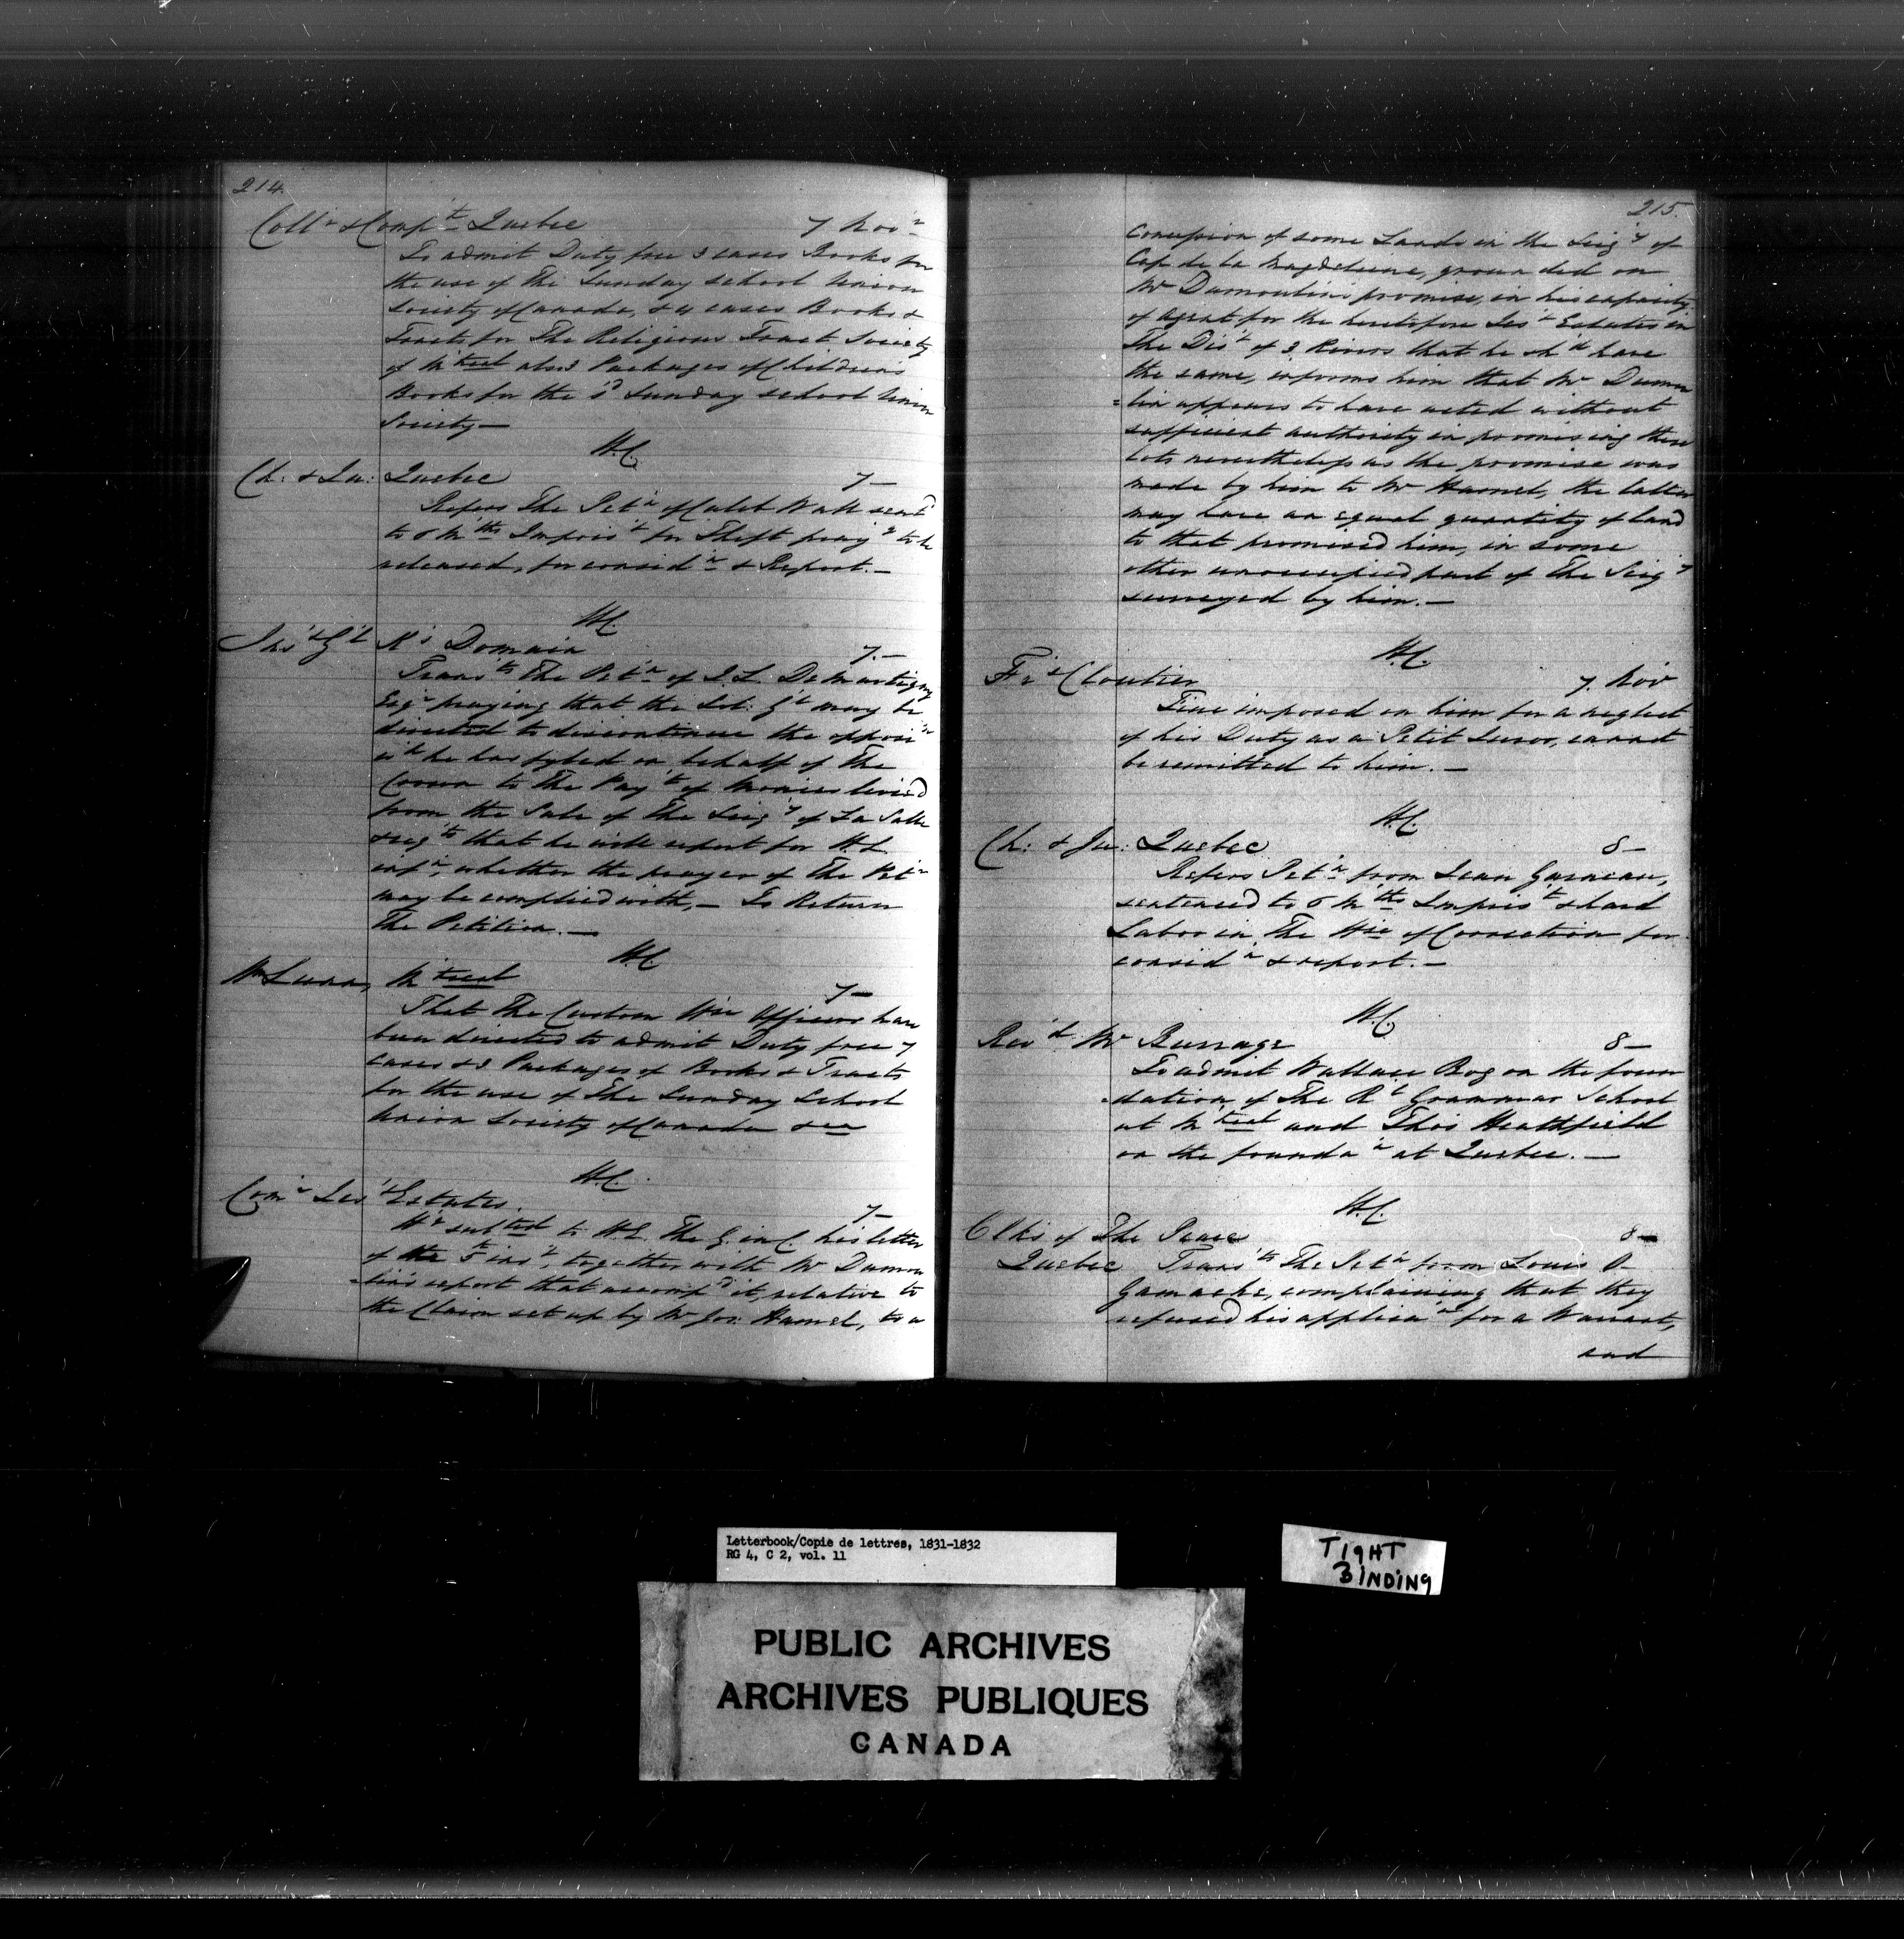 214.
Coll'r & Comp't Quebec 7 Nov'r
To admit Duty free 3 cases Books for
the use of the Sunday School Union
Society of Canada, & 4 cases Books &
Tracts for The Religious Tract Society
of M'treal also 3 Packages of Childrens
Books for the s'd Sunday School Union
Society —
H.C.
Ch: & Ju: Quebec 7 —
Refers The Pet'n of Caleb Watt sent'd
to 6 M'ths Impris't for Theft pray'g to be
released, for consid'n & Report. —
H.C.
Ins' G'l K's Domain 7. —
Trans'ts The Pet'n of J. L. De Martigny
Esq'r praying that the Sol: G'l may be
directed to discontinue the opposi'n
w'h he has fyled on behalf of The
Crown to The Pay't of Monies levied
from the Sale of The Seig'y of La Salle
& req'ts that he will report for H.E.
inf'n, whether the prayer of The Pet'n
may be complied with, — To Return
The Petition. —
H.C.
Wm Lunn, M'treal 7 —
That The Custom Hse Officers have
been directed to admit Duty free 7
cases & 3 Packages of Books & Tracts
for the use of The Sunday School
Union Society of Canada &ca
H.C.
Com'r Jes'ts Estates. 7 —
H'g sub'ted to H.E. The G. in C. his letter
of the 5 ins't, together with Mr Dumou
=lins report that accomp'd it, relative to
the Claim set up by Mr Jos: Hamel, to a
215.
concession of some Lands in the Seig'y of
Cap de la Magdeleine, grounded on
Mr Dumoulin's promise, in his capacity
of Agent for the heretofore Jes'ts Estates in
The Dis't of 3 Rivers that he sh'd have
the same, informs him that Mr Dumou
=lin appears to have acted without
sufficient authority in promising these
Lots nevertheless as the promise was
made by him to Mr Hamel, the latter
may have an equal quantity of land
to that promised him, in some
other unoccupied part of The Seig'y
surveyed by him. —
H.C.
Fr's Cloutier 7. Nov
Fine imposed on him for a neglect
of his Duty as a Petit Juror, cannot
be remitted to him. —
H.C.
Ch: & Ju: Quebec 8 —
Refers Pet'n from Jean Garneau,
sentenced to 6 M'ths Impris't & hard
Labor in The Hse of Correction for
consid'n & report. —
H.C.
Rev'd Mr Burrage 8 —
To admit Wallace Bog on the foun
=dation of The R'l Grammar School
at M'treal and Thos Heathfield
on the founda'n at Quebec. —
H.C.
Clks of The Peace 8 —
Quebec Trans'ts The Pet'n from Louis O
Gamache, complaining that they
refused his applica'on for a Warrant,
and
Letterbook/Copie de lettres, 1831-1832
RG 4, C 2, vol. 11
TIGHT
BINDING
PUBLIC ARCHIVES
ARCHIVES PUBLIQUES
CANADA